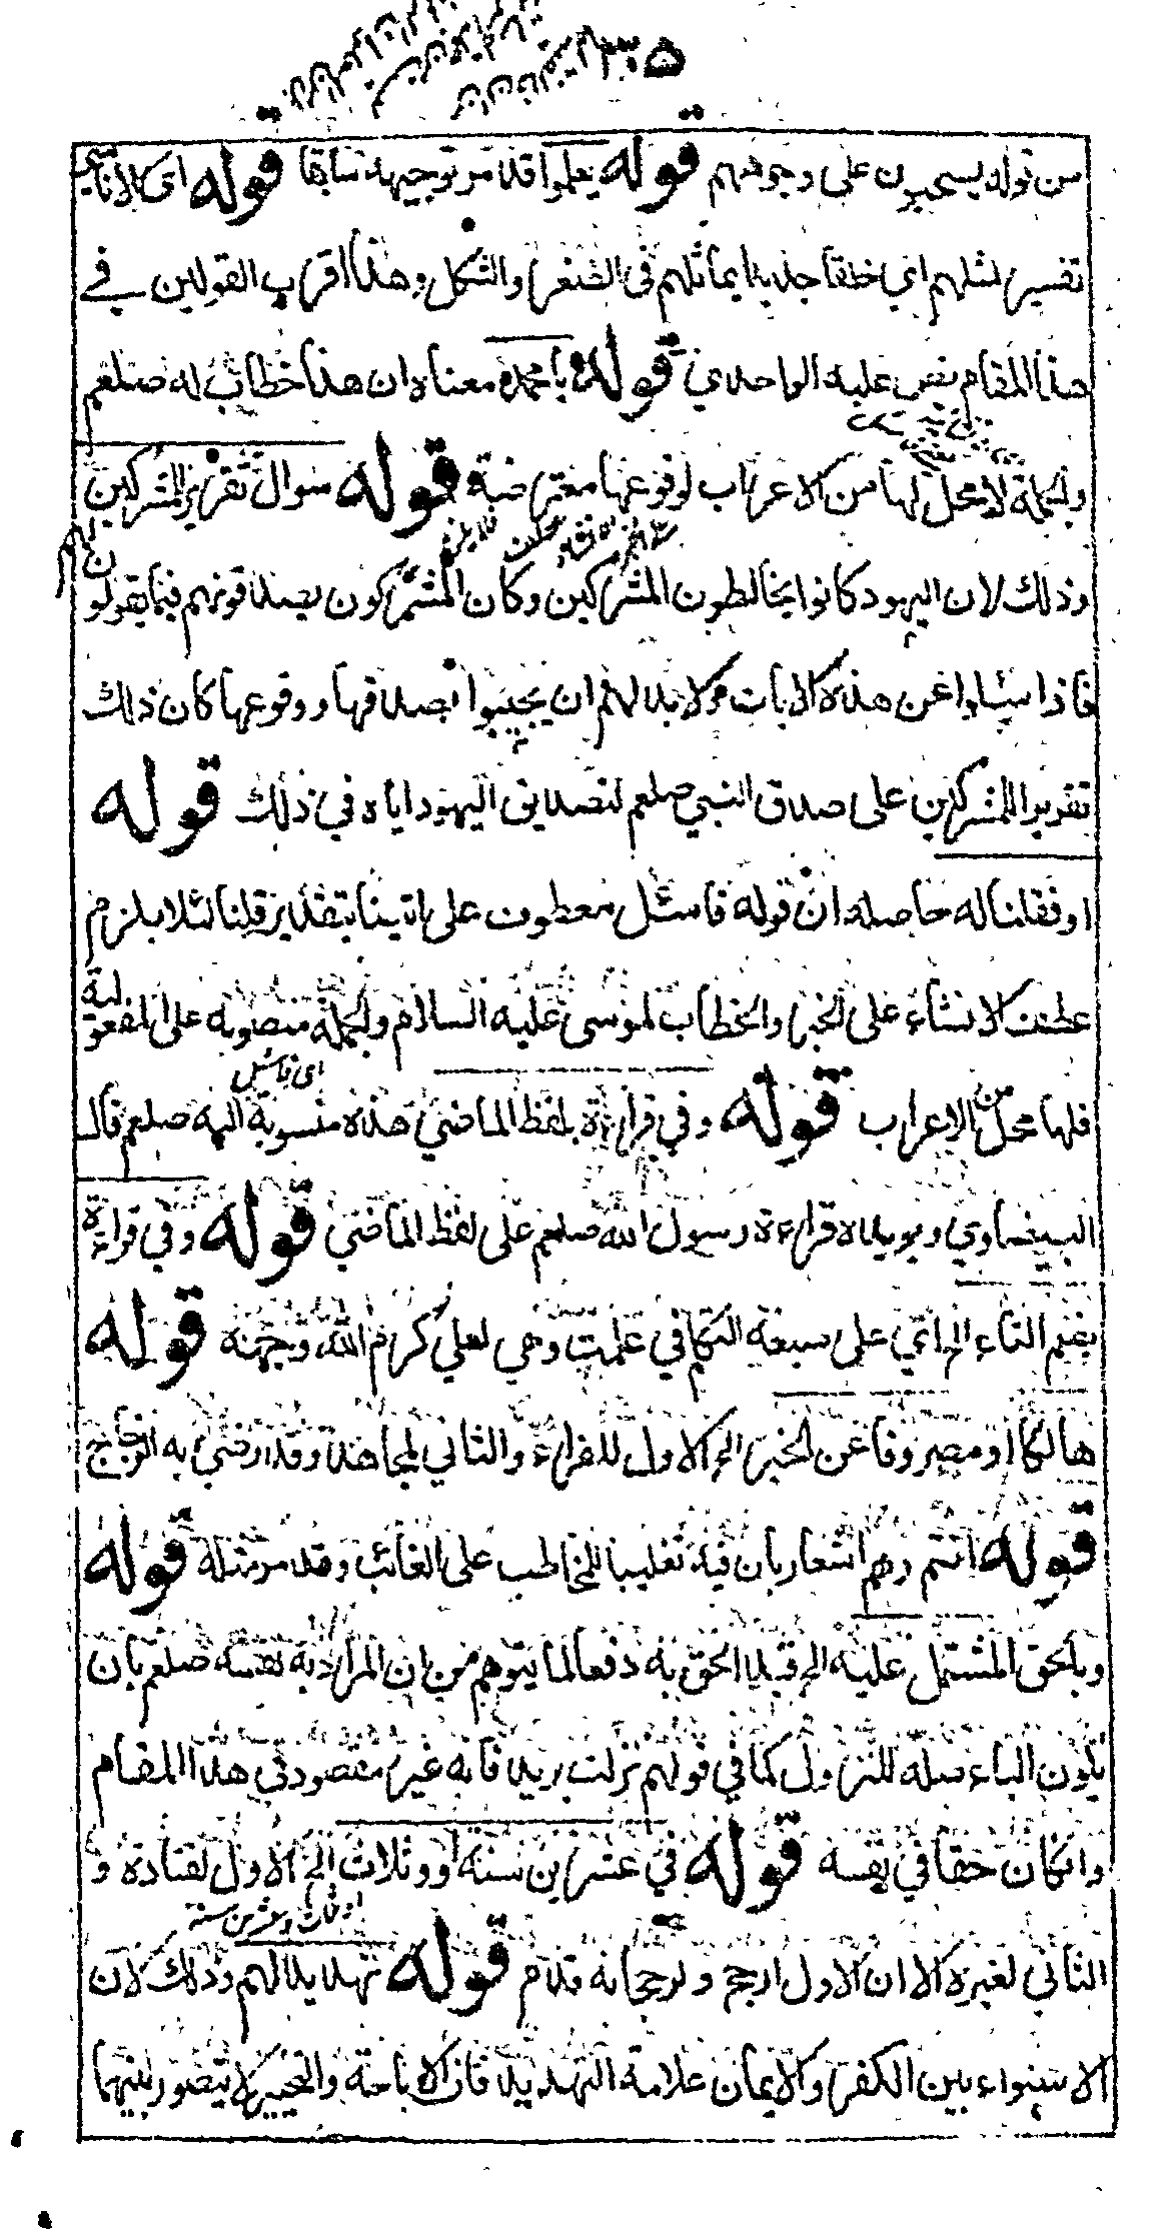 ٣٠٥
من قوله يسحبون على وجوههم قوله يعلموا قد مر توجيهه سابقا قوله اى الاناسي
تفسير لمثلهم اي خلقا جديدا يماثلهم في الصغر والشكل وهذا اقرب القولين في
هذا المقام نص عليه الواحدي قوله يا محمد معناه ان هذا خطاب له صلعم
والجملة لا محل لها من الاعراب لوقوعها معترضة قوله سوال تقرير للمشركين
وذلك لان اليهود كانوا يخالطون المشركين وكان المشركون يصدقونهم فيما يقولون
فاذا سئلوا عن هذه الايات ولا بد لهم ان يجيبوا بصدقها ووقوعها كان ذلك
تقريرا للمشركين على صدق النبي صلعم لتصديق اليهود اياه في ذلك قوله
او فقلنا له حاصله ان قوله فاسئل معطوف على اتينا بتقدير قلنا لئلا يلزم
عطف الانشاء على الخبر والخطاب لموسى عليه السلام والجملة منصوبة على المفعولية
فلها محل من الاعراب قوله وفي قراءة بلفظ الماضي هذه منسوبة اليه صلعم قال
اى فاسئل
البيضاوي ويويده قراءة رسول الله صلعم على لفظ الماضي قوله وفي قراءة
بضم التاء الم اي على صيغة التكلم في علمت وهي لعلي كرم الله وجهه قوله
هالكا او مصروفا عن الخير الم الاول للفراء والثاني لمجاهد وقد رضي به الزجاج
قوله انتم وهم اشعار بان فيه تغليبا للمخاطب على الغائب وقد مر مثله قوله
وبالحق المشتمل عليه الم قيد الحق به دفعا لما يتوهم من ان المراد به نفسه صلعم بان
يكون الباء صلة للنزول كما في قولهم نزلت بزيد فانه غير مقصود في هذا المقام
وان كان حقا في نفسه قوله في عشرين سنة او وثلاث الخ الاول لقتادة و
او ثلث وعشرين سنة
الثاني لغيره الا ان الاول ارجح ولرجحانه قدم قوله تهديدا لهم وذلك لان
الاستواء بين الكفر والايمان علامة التهديد فان الاباحة والتخيير لا يتصور بينهما